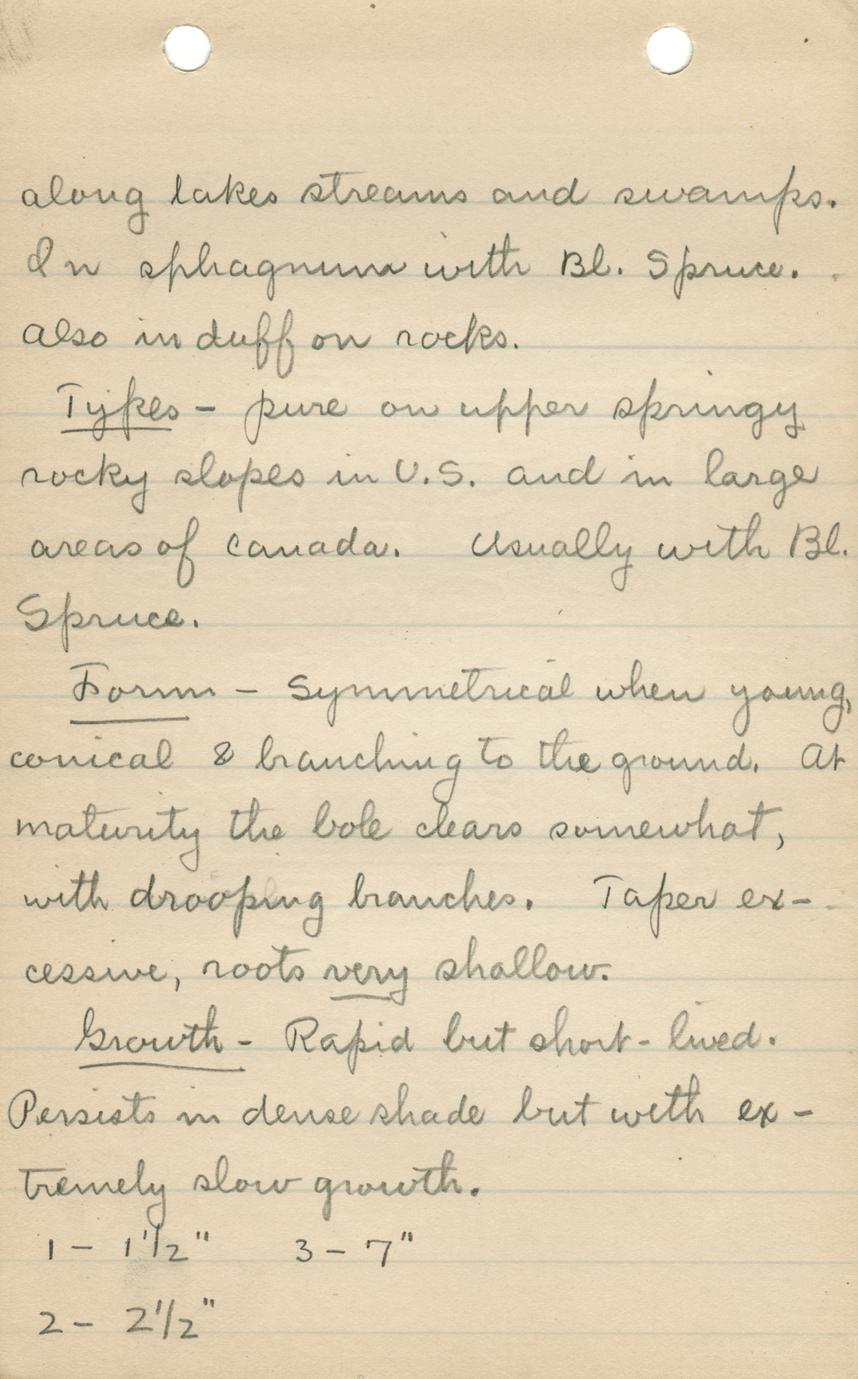 along lakes streams and swamps.
In sphagnum with Bl. Spruce.
also in duff on rocks.
Types - pure on upper springy
rocky slopes in U.S. and in large
areas of Canada. Usually with Bl.
Spruce.
Form - Symmetrical when young,
conical & branching to the ground. At
maturity the bole clears somewhat,
with drooping branches. Taper ex-
cessive, roots very shallow.
Growth - Rapid but short-lived.
Persists in dense shade but with ex-
tremely slow growth.
1 - 1 1/2" 3 - 7"
2 - 2 1/2"